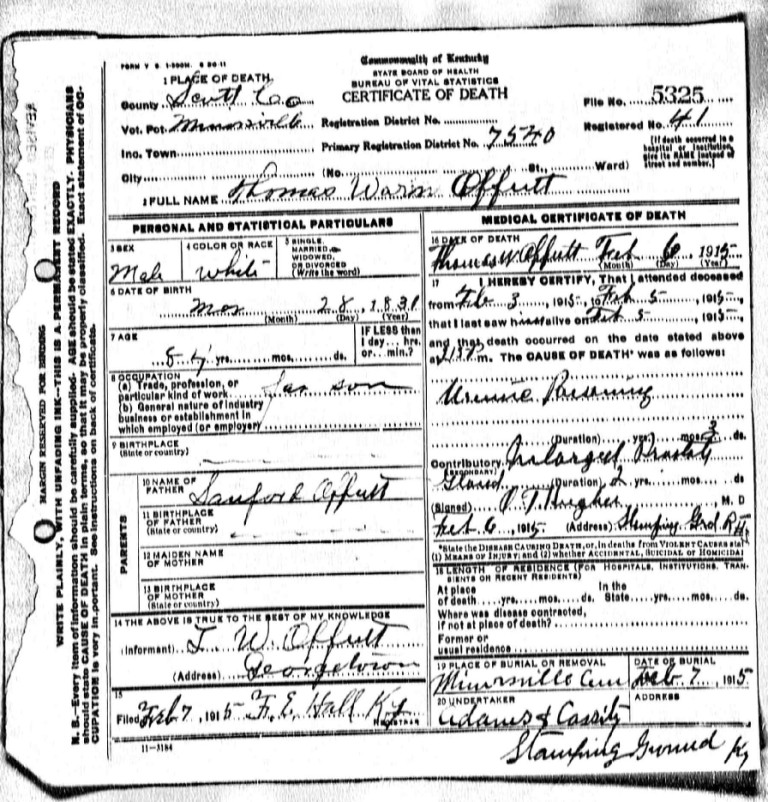 FORM V S 1-200M. 6 20-11
Commonwealth of Kentucky
STATE BOARD OF HEALTH
BUREAU OF VITAL STATISTICS
CERTIFICATE OF DEATH
1 PLACE OF DEATH
County Scott Co
Vot. Pct.
Inc. Town
City
Registration District No.
Primary Registration District No. 7540
(No. St., Ward)
File No. 5325
Registered No. 41
[If death occurred in a hospital or institution, give its NAME instead of street and number.]
2 FULL NAME Thomas Warin Offutt
PERSONAL AND STATISTICAL PARTICULARS
3 SEX
Male
4 COLOR OR RACE
White
5 SINGLE, MARRIED, WIDOWED, OR DIVORCED
(Write the word)
6 DATE OF BIRTH
28, 183
(Month) (Day) (Year)
7 AGE
8 yrs. mos. ds.
IF LESS than
1 day hrs.
or min.?
8 OCCUPATION
(a) Trade, profession, or
particular kind of work
(b) General nature of industry
business or establishment in
which employed (or employer)
9 BIRTHPLACE
(State or country)
PARENTS
10 NAME OF
FATHER Sanford Offutt
11 BIRTHPLACE
OF FATHER
(State or country)
12 MAIDEN NAME
OF MOTHER
13 BIRTHPLACE
OF MOTHER
(State or country)
14 THE ABOVE IS TRUE TO THE BEST OF MY KNOWLEDGE
(Informant) T W Offutt
(Address) Georgetown
15
Filed Feb 7, 1915 F. E. Hall Ky
REGISTRAR
11-3184
MEDICAL CERTIFICATE OF DEATH
16 DATE OF DEATH
Thomas W Offutt Feb 6 1915
(Month) (Day) (Year)
17 I HEREBY CERTIFY, That I attended deceased
from Feb 3, 1915, to Feb 5, 1915,
that I last saw him alive on Feb 5, 1915,
and that death occurred on the date stated above
at m. The CAUSE OF DEATH* was as follows:
Uremic Poisoning
(Duration) yrs. mos. 3 ds.
Contributory Enlarged Prostate
(SECONDARY)
Gland (Duration) 2 yrs. mos. ds.
(Signed) M. D
Feb 6, 1915 (Address) Stamping Grd
*State the DISEASE CAUSING DEATH, or, in deaths from VIOLENT CAUSES state
(1) MEANS OF INJURY; and (2) whether ACCIDENTAL, SUICIDAL OR HOMICIDAL
18 LENGTH OF RESIDENCE (FOR HOSPITALS, INSTITUTIONS, TRAN-
SIENTS OR RECENT RESIDENTS)
At place In the
of death yrs. mos. ds. State yrs. mos. ds.
Where was disease contracted,
if not at place of death?
Former or
usual residence
19 PLACE OF BURIAL OR REMOVAL
Cem
DATE OF BURIAL
Feb 7, 1915
20 UNDERTAKER
Adams & Cassity
ADDRESS
Stamping Ground Ky
MARGIN RESERVED FOR BINDING
WRITE PLAINLY, WITH UNFADING INK—THIS IS A PERMANENT RECORD
N. B.—Every item of information should be carefully supplied. AGE should be stated EXACTLY. PHYSICIANS
should state CAUSE OF DEATH in plain terms, so that it may be properly classified. Exact statement of OC-
CUPATION is very important. See instructions on back of certificate.